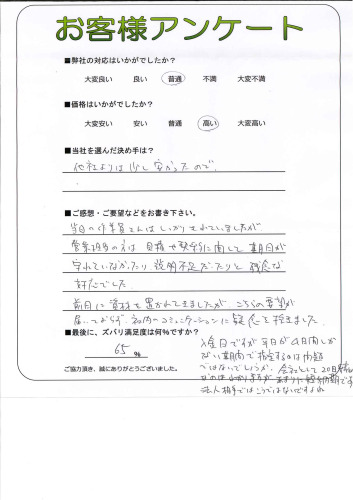 お客様アンケート
■弊社の対応はいかがでしたか？
大変良い 良い 普通 不満 大変不満
■価格はいかがでしたか？
大変安い 安い 普通 高い 大変高い
■当社を選んだ決め手は？
他社よりは少し安かったので。
■ご感想・ご要望などをお書き下さい。
当日の作業員さんはしっかりされていましたが
営業担当の方は見積や契約に関して期日が
守れていなかったり、説明不足だったりと残念な
対応でした。
前日に資材を置かれてきましたが、こちらの要望が
届いておらず社内のコミュニケーションに疑念を抱きました。
■最後に、ズバリ満足度は何％ですか？
65 %
ご協力頂き、誠にありがとうございました。
入金日ですが平日が4日間しか
ない期間で指定するのは問題
ではないでしょうか。会社として20日
なのは分かりますが、あまりに短納期です
法人相手ではこうではないですよね